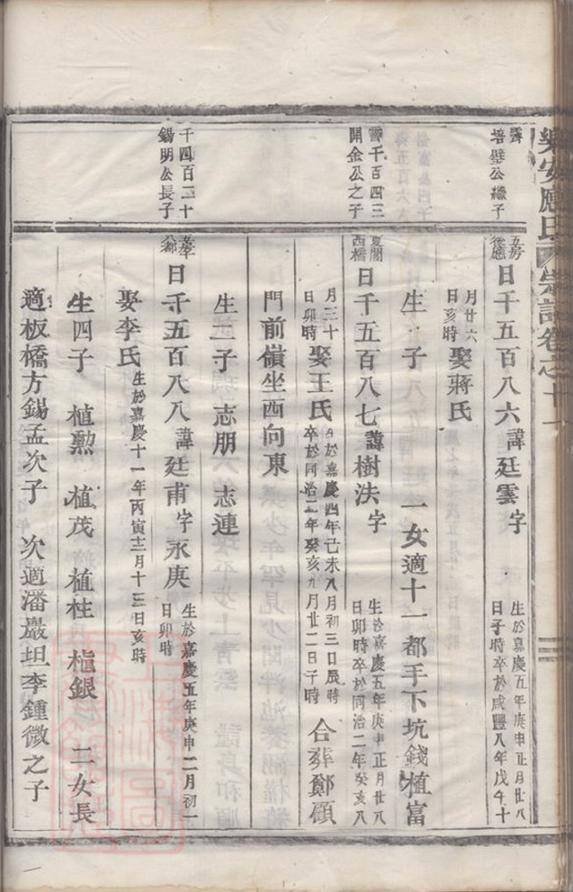 樂安 氏宗譜卷之十一
霽
培壂公繼子
五房
後應
日千五百八六諱廷雲字
生於嘉慶五年庚申正月廿八
日子時卒於咸豐八年戊午十
月廿六
日亥時
娶蔣氏
生 子 一女適十一都手下坑錢植富
千百四三
開金公之子
夏閣
西橋
日千五百八七諱樹法字
生於嘉慶五年庚申正月廿八
日卯時卒於同治二年癸亥八
月三十
日卯時
娶王氏
生於嘉慶四年己未八月初三日辰時
卒於同治二年癸亥九月廿二日子時
合葬鄭碩
門前嶺坐西向東
生二子 志朋 志連
千四百二十
錫明公長子
日千五百八八諱廷甫字永庚
生於嘉慶五年庚申二月初一
日卯時
娶李氏
生於嘉慶十一年丙寅十二月十三日亥時
生四子 植勲 植茂 植柱 植銀 二女長
適板橋方錫孟次子 次適潘巖坦李鍾微之子